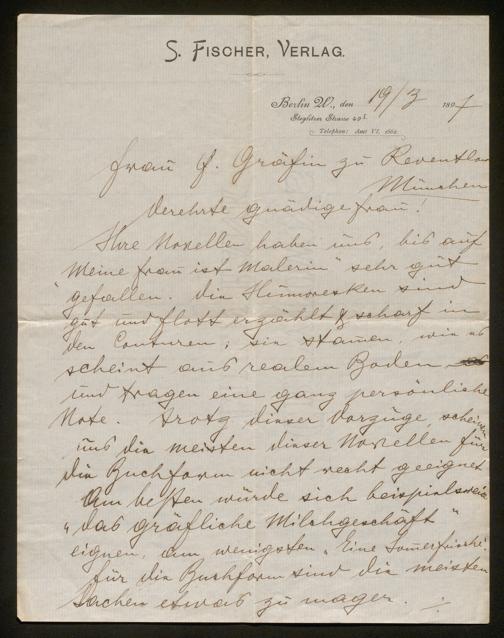 S. FISCHER, VERLAG.
Berlin W., den 19/3 1897
Steglitzer Strasse 49 I.
Telephon: Amt VI, 1662
Frau F. Gräfin zu Reventlow
München
Verehrte gnädige Frau!
Ihre Novellen haben uns, bis auf
"Meine Frau ist Malerin" sehr gut
gefallen. Die Humoresken sind
gut und flott erzählt & scharf in
den Conturen; sie stamen, wie es
scheint aus realem Boden
und tragen eine ganz persönliche
Note. Trotz dieser Vorzüge scheinen
uns die meisten dieser Novellen für
die Buchform nicht recht geeignet
Am besten würde sich beispielsweise
"das gräfliche Milchgeschäft"
eignen, am wenigsten "Eine Somerfrische".
Für die Buchform sind die meisten
Sachen etwas zu mager. ./.